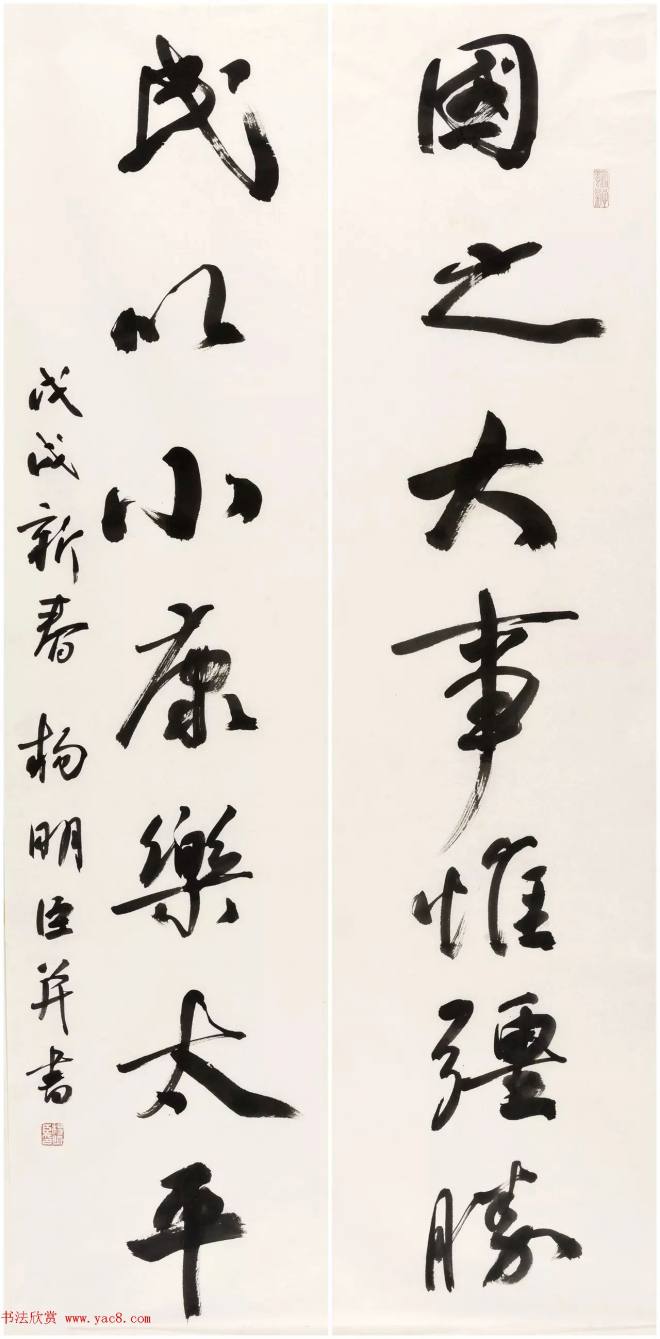 國之大事惟疆勝
民以小康樂太平
戊戌新春 楊明臣並書
书法欣赏 www.yac8.com